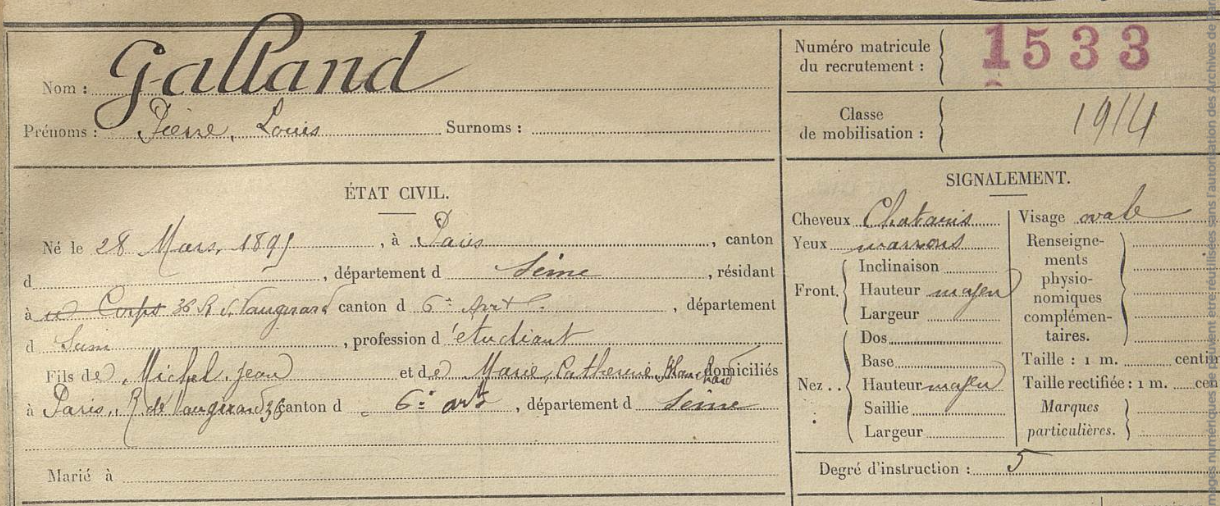 Nom : Galland
Prénoms : Pierre, Louis Surnoms :
Numéro matricule
du recrutement :
1533
Classe
de mobilisation :
1914
ÉTAT CIVIL.
Né le 28 Mars, 1895, à Paris, canton
d , département d Seine, résidant
à au Corps 36 R d. Vaugirard canton d 6e Arrt, département
d Seine, profession d'étudiant
Fils de Michel Jean et de Marie, Catherine domiciliés
à Paris, R de Vaugirard 36 canton d 6e art, département d Seine
Marié à
SIGNALEMENT.
Cheveux Chatains
Yeux marrons
Front.
Inclinaison
Hauteur moyen
Largeur
Nez..
Dos
Base
Hauteur moyen
Saillie
Largeur
Visage ovale
Renseigne-
ments
physio-
nomiques
complémen-
taires.
Taille : 1 m. centim
Taille rectifiée : 1 m. cen
Marques
particulières.
Degré d'instruction : 5
mages numériques ne peuvent être réutilisées sans l'autorisation des Archives de